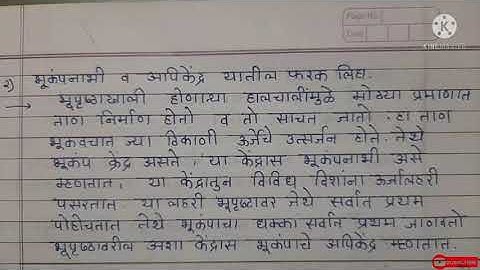 Page No.
Date
KINEMASTER
२) भूकंपनाभी व अपिकेंद्र यातील फरक लिहा.
→ भूपृष्ठाखाली होणाऱ्या हालचालींमुळे मोठ्या प्रमाणात
ताण निर्माण होतो व तो साचत जातो. हा ताण
भूकवचात ज्या ठिकाणी ऊर्जेचे उत्सर्जन होते. तेथे
भूकंप केंद्र असते, या केंद्रास भूकंपनाभी असे
म्हणतात, या केंद्रातुन विविध दिशांना ऊर्जालहरी
पसरतात. या लहरी भूपृष्ठावर जेथे सर्वात प्रथम
पोहोचतात तेथे भूकंपाचा धक्का सर्वात प्रथम जाणवतो
भूपृष्ठावरील अशा केंद्रास भूकंपाचे अपिकेंद्र म्हणतात.
SUBSCRIBE